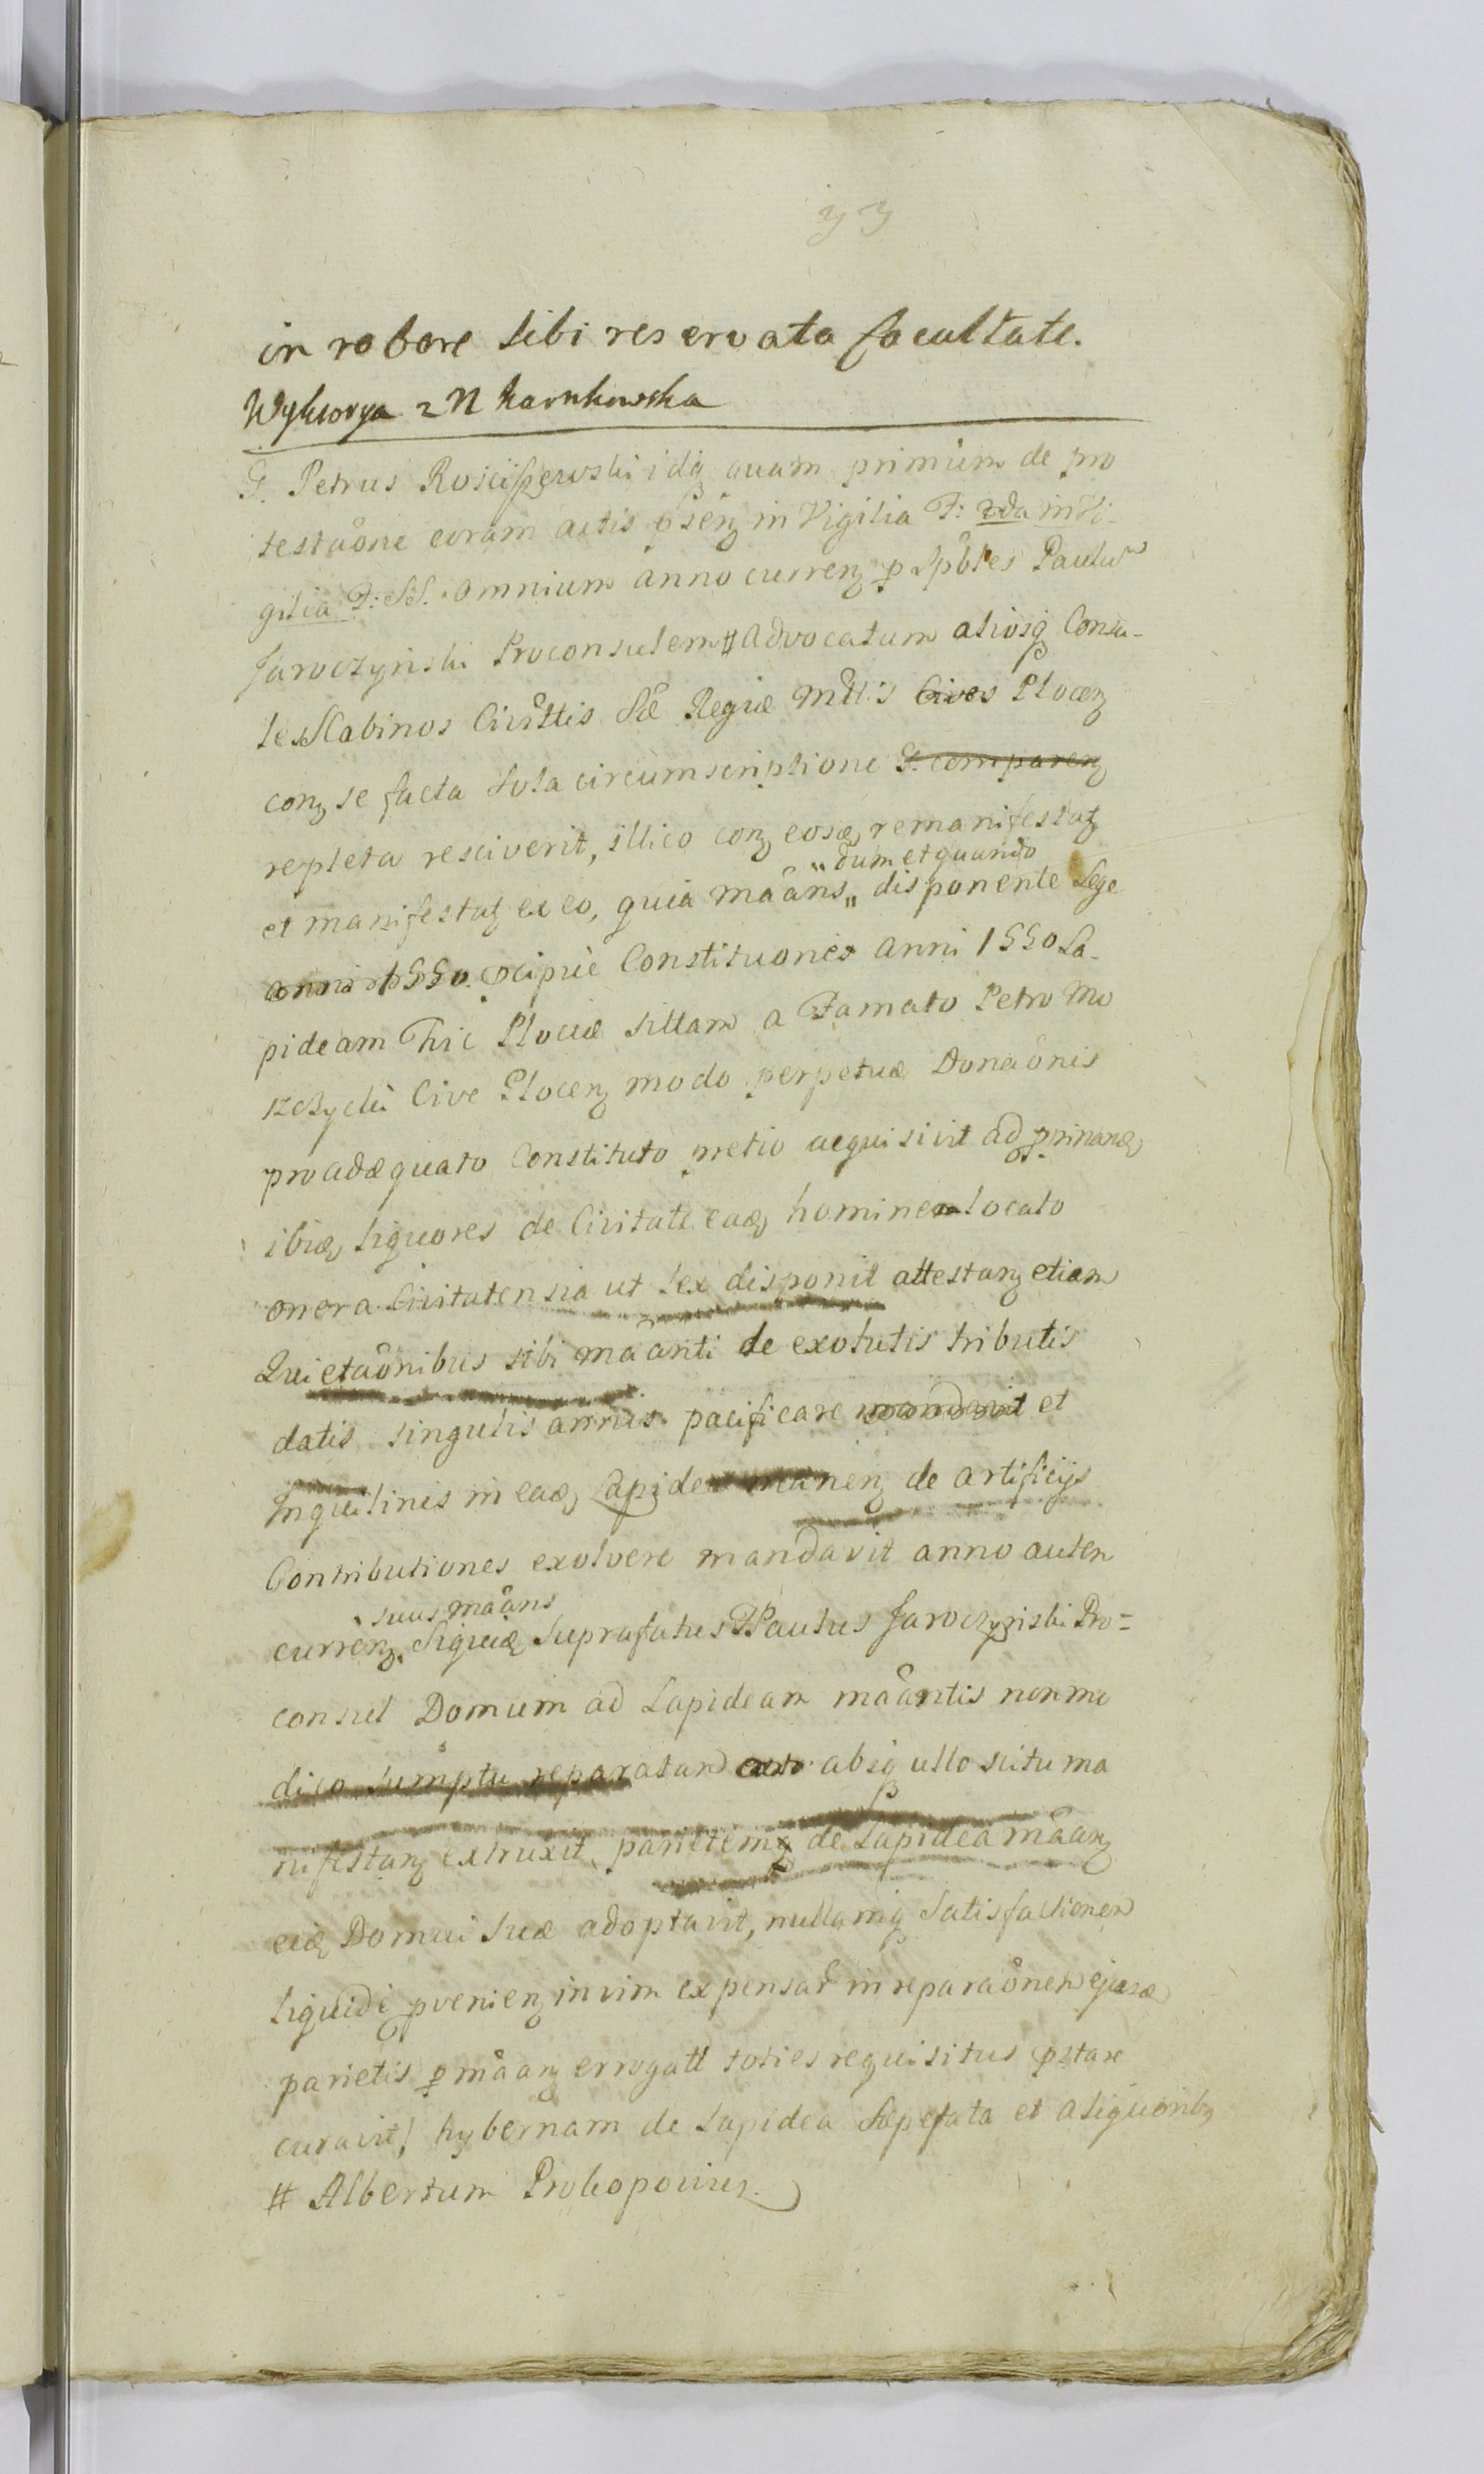 33
in robore sibi reservata facultate.
Wyktorya z N Karnkowska
G. Petrus Rosciszewski idq quam primum de pro
testaône coram actis psenz in Vigilia F: in Vi-
gilia F: SS. Omnium anno currenz p Spbles Paulum
Jaroczynski Proconsulem # Advocatum aliosq Consu-
les Scabinos Civittis Sæ Regiæ Mttis Cives Plocenz
conz se facta sola circumscriptione G. comparenz
repleta resciverit, illico conz eosdē remanifestatz
„ dum et quando
et manifestatz ex eo, quia maâns „ disponente Lege
anni 1550. præcipue Constituones anni 1550 La-
pideam hic Plociæ sittam a Famato Petro Mo
Cive Plocenz modo perpetuæ Donaônis
pro adæquato constituto pretio acquisivit ad
liquores de Civitate eadē, hominem locato
onera Civitatensia ut lex disponit attestanz etiam
Quietaônibus sibi maânti de exolutis tributis
datis singulis annis pacificare mandavit et
Inquilinis in eadē, Lapidea manenz de artificijs
Contributiones exolvere mandavit anno autem
suus maâns
currenz, Siquidē Suprafatus Paulus Jaroczynski Pro=
consul Domum ad Lapideam maântis non mo
dico sumptu reparatam absq ullo scitu ma
nifestanz extruxit, parietemq de Lapidea maanz
eidē Domui suæ adoptavit, nullamq Satisfactionem
liquide pvenienz in vim expensar in reparaônem ejusdē
parietis p maanz errogatt toties requisitus pstare
curavit, hybernam de Lapidea Sæpefata et a liquoribz
# Albertum Prokopowicz.